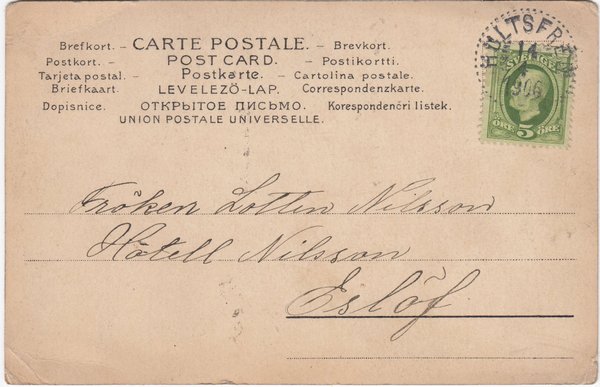 Brefkort. – CARTE POSTALE. – Brevkort.
Postkort. – POST CARD. – Postikortti.
Tarjeta postal. – Postkarte. – Cartolina postale.
Briefkaart. LEVELEZŐ-LAP. Correspondenzkarte.
Dopisnice. ОТКРЫТОЕ ПИСЬМО. Korespondenčri listek.
UNION POSTALE UNIVERSELLE.
HULTSFRED
14
906
SVERIGE
5 ÖRE 5 ÖRE
Fröken Lotten Nilsson
Hôtell Nilsson
Eslöf